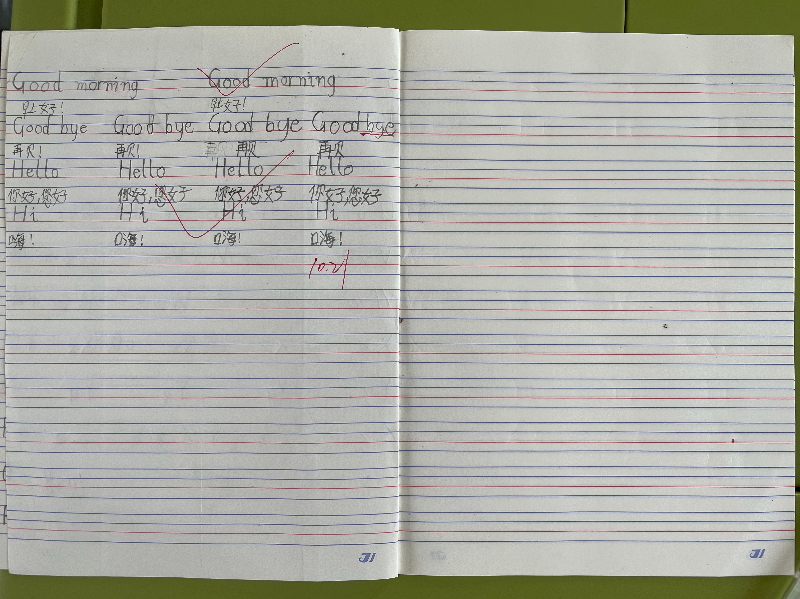 Good morning Good morning
早上好! 早上好!
Good bye Good bye Good bye Good bye
再见! 再见! 再见 再见
Hello Hello Hello Hello
你好,您好 你好,您好 你好,您好 你好,您好
Hi Hi Hi Hi
嗨! 嗨! 嗨! 嗨!
10.21